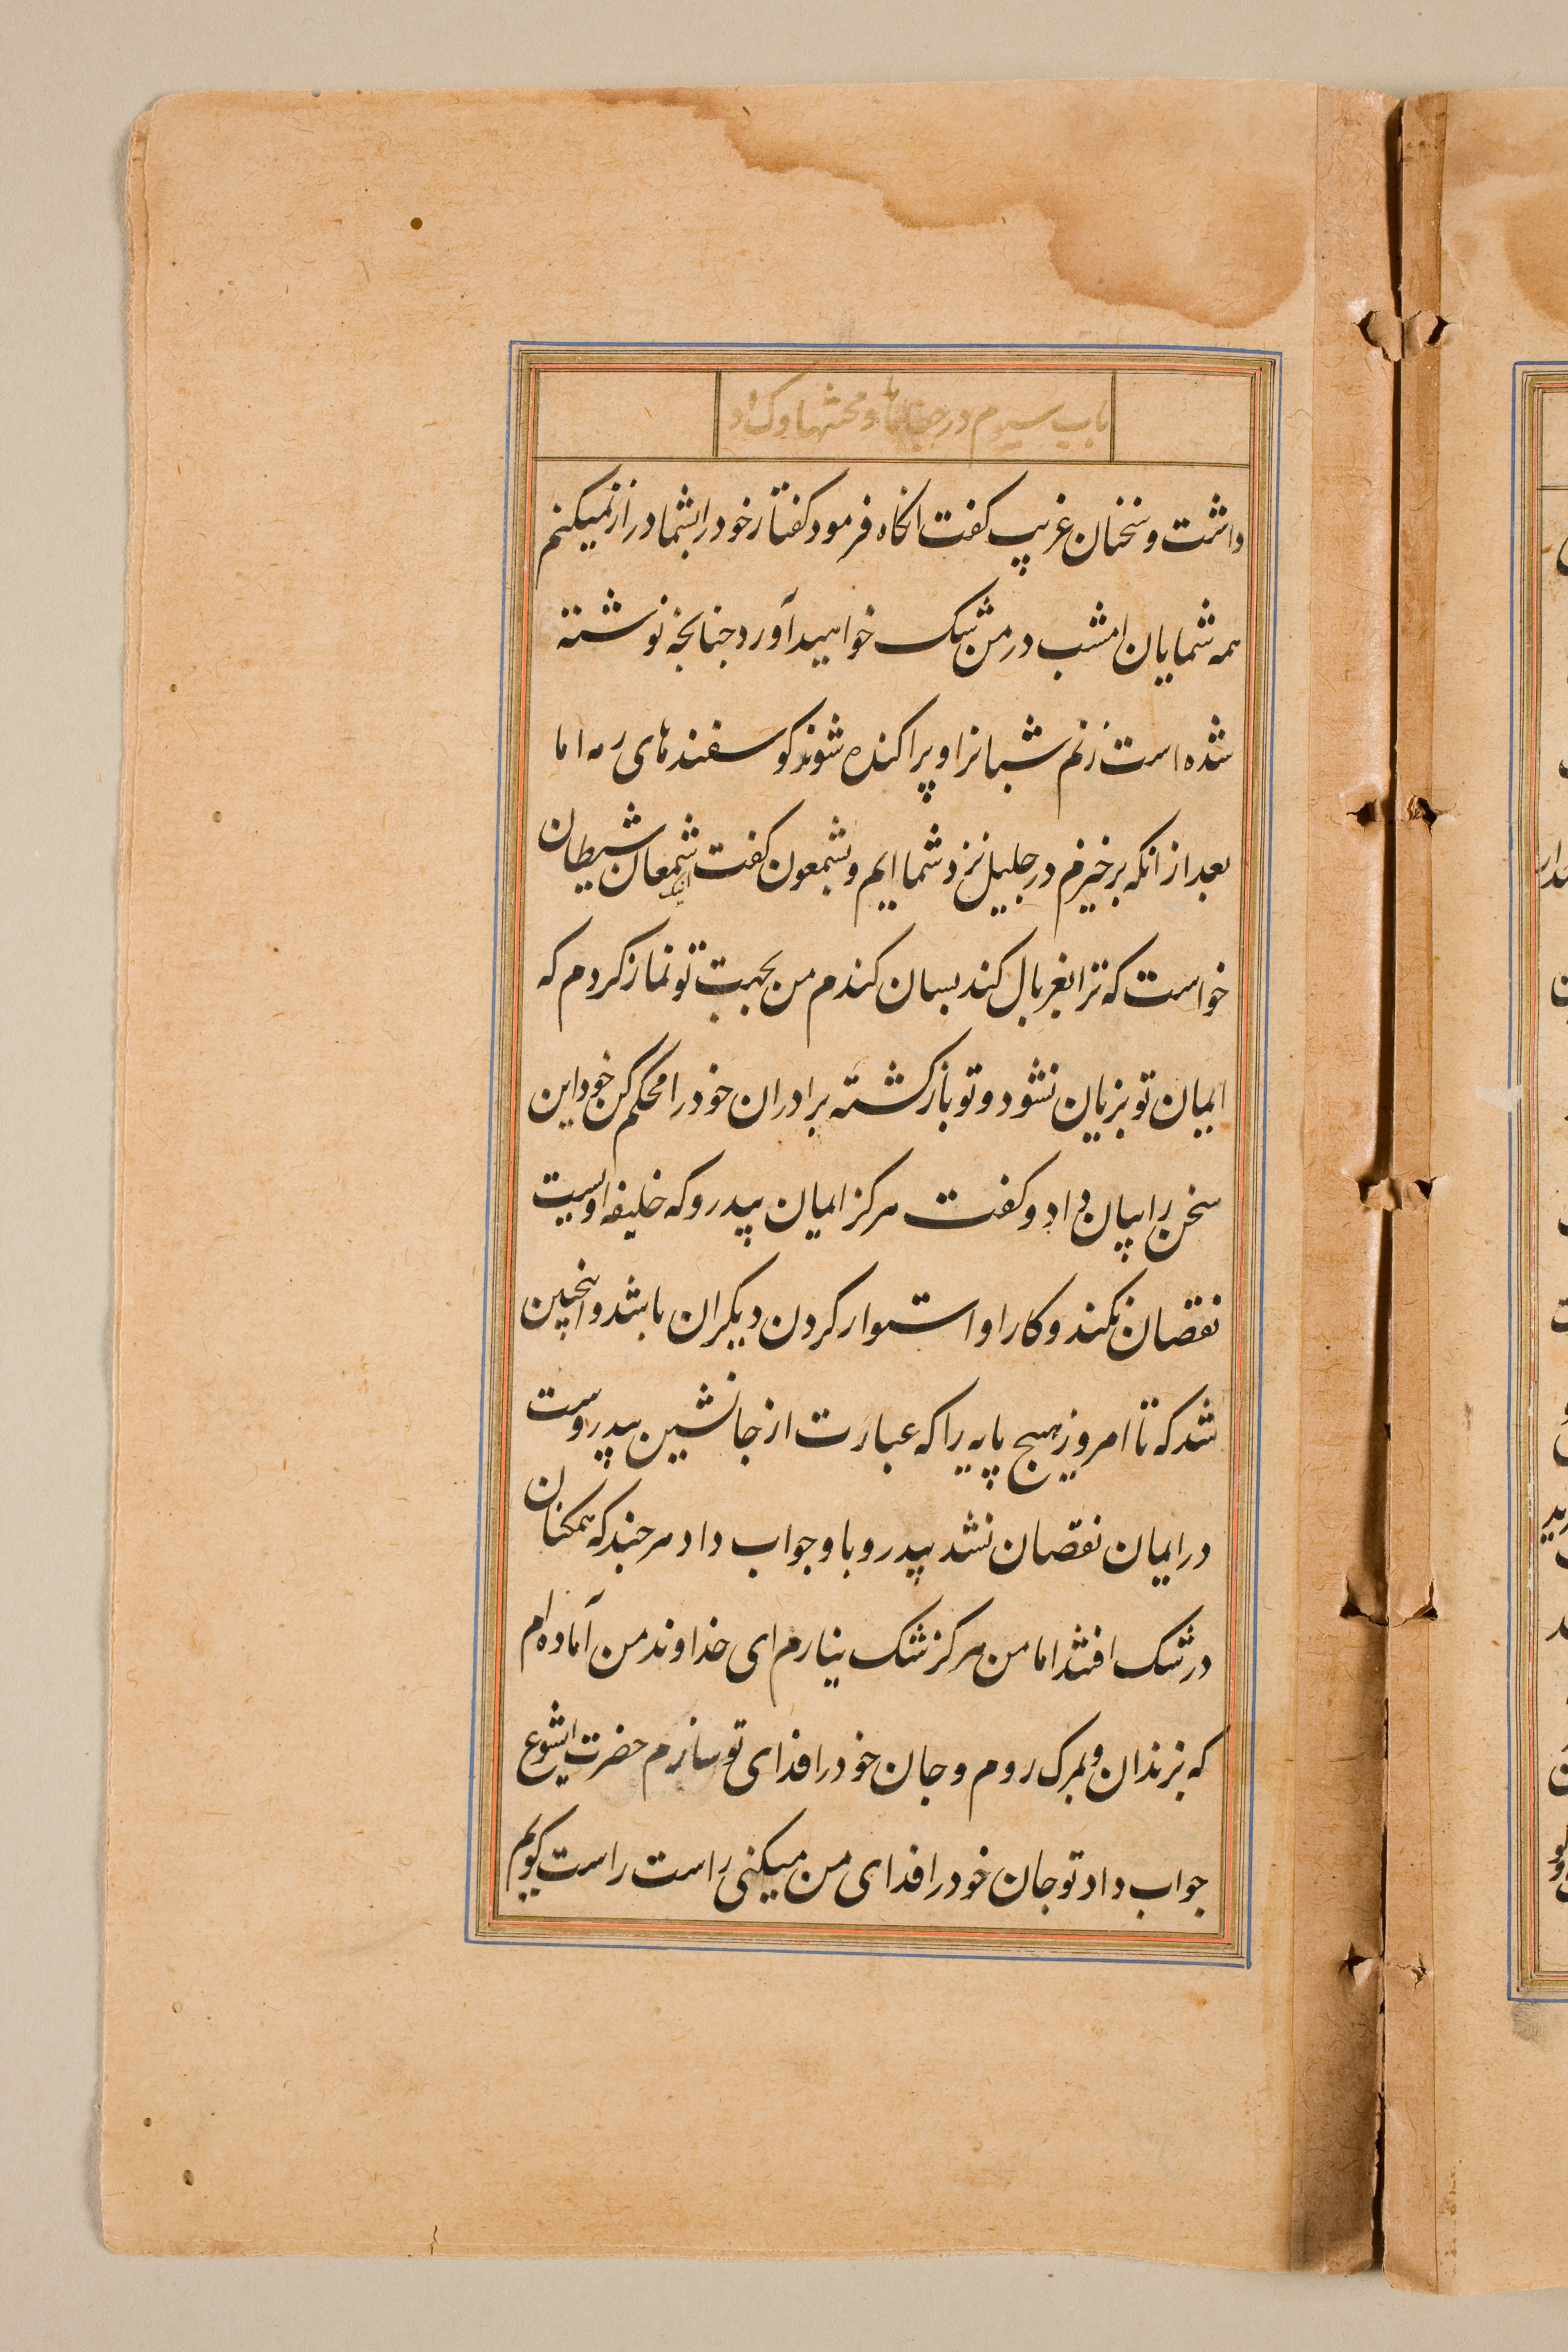 باب سیوم در جفاها و محنتها و
داشت و سخنان غریب کفت انکاه فرمود کفتار خود را بشما دراز نمیکنم
همه شمایان امشب در من شک خواهید آورد جنانجه نوشته
شده است زنم شبانرا و پراکنده شوند کوسفندهای رمه اما
بعد از انکه برخیزم در جلیل نزد شما ایم و بشمعون کفت شمعان اینک شیطان
خواست که ترا بغربال کند بسان کندم من بجهت تو نماز کردم که
ایمان تو بزیان نشود و تو بازکشته برادران خود را محکم کن خود این
سخن را بیان داد و کفت هرکز ایمان پیدرو که خلیفه اویست
نقصان نکند و کار او استوار کردن دیکران باشد و انچنین
شد که تا امروز هیچ پاپه را که عبارت از جانشین پیدروست
در ایمان نقصان نشد پیدرو با و جواب داد هر جند که همکنان
در شک افتند اما من هرکز شک نیارم ای خداوند من آماده ام
که بزندان و بمرک روم و جان خود را فدای تو سازم حضرت ایشوع
جواب داد تو جان خود را فدای من میکنی راست راست کویم